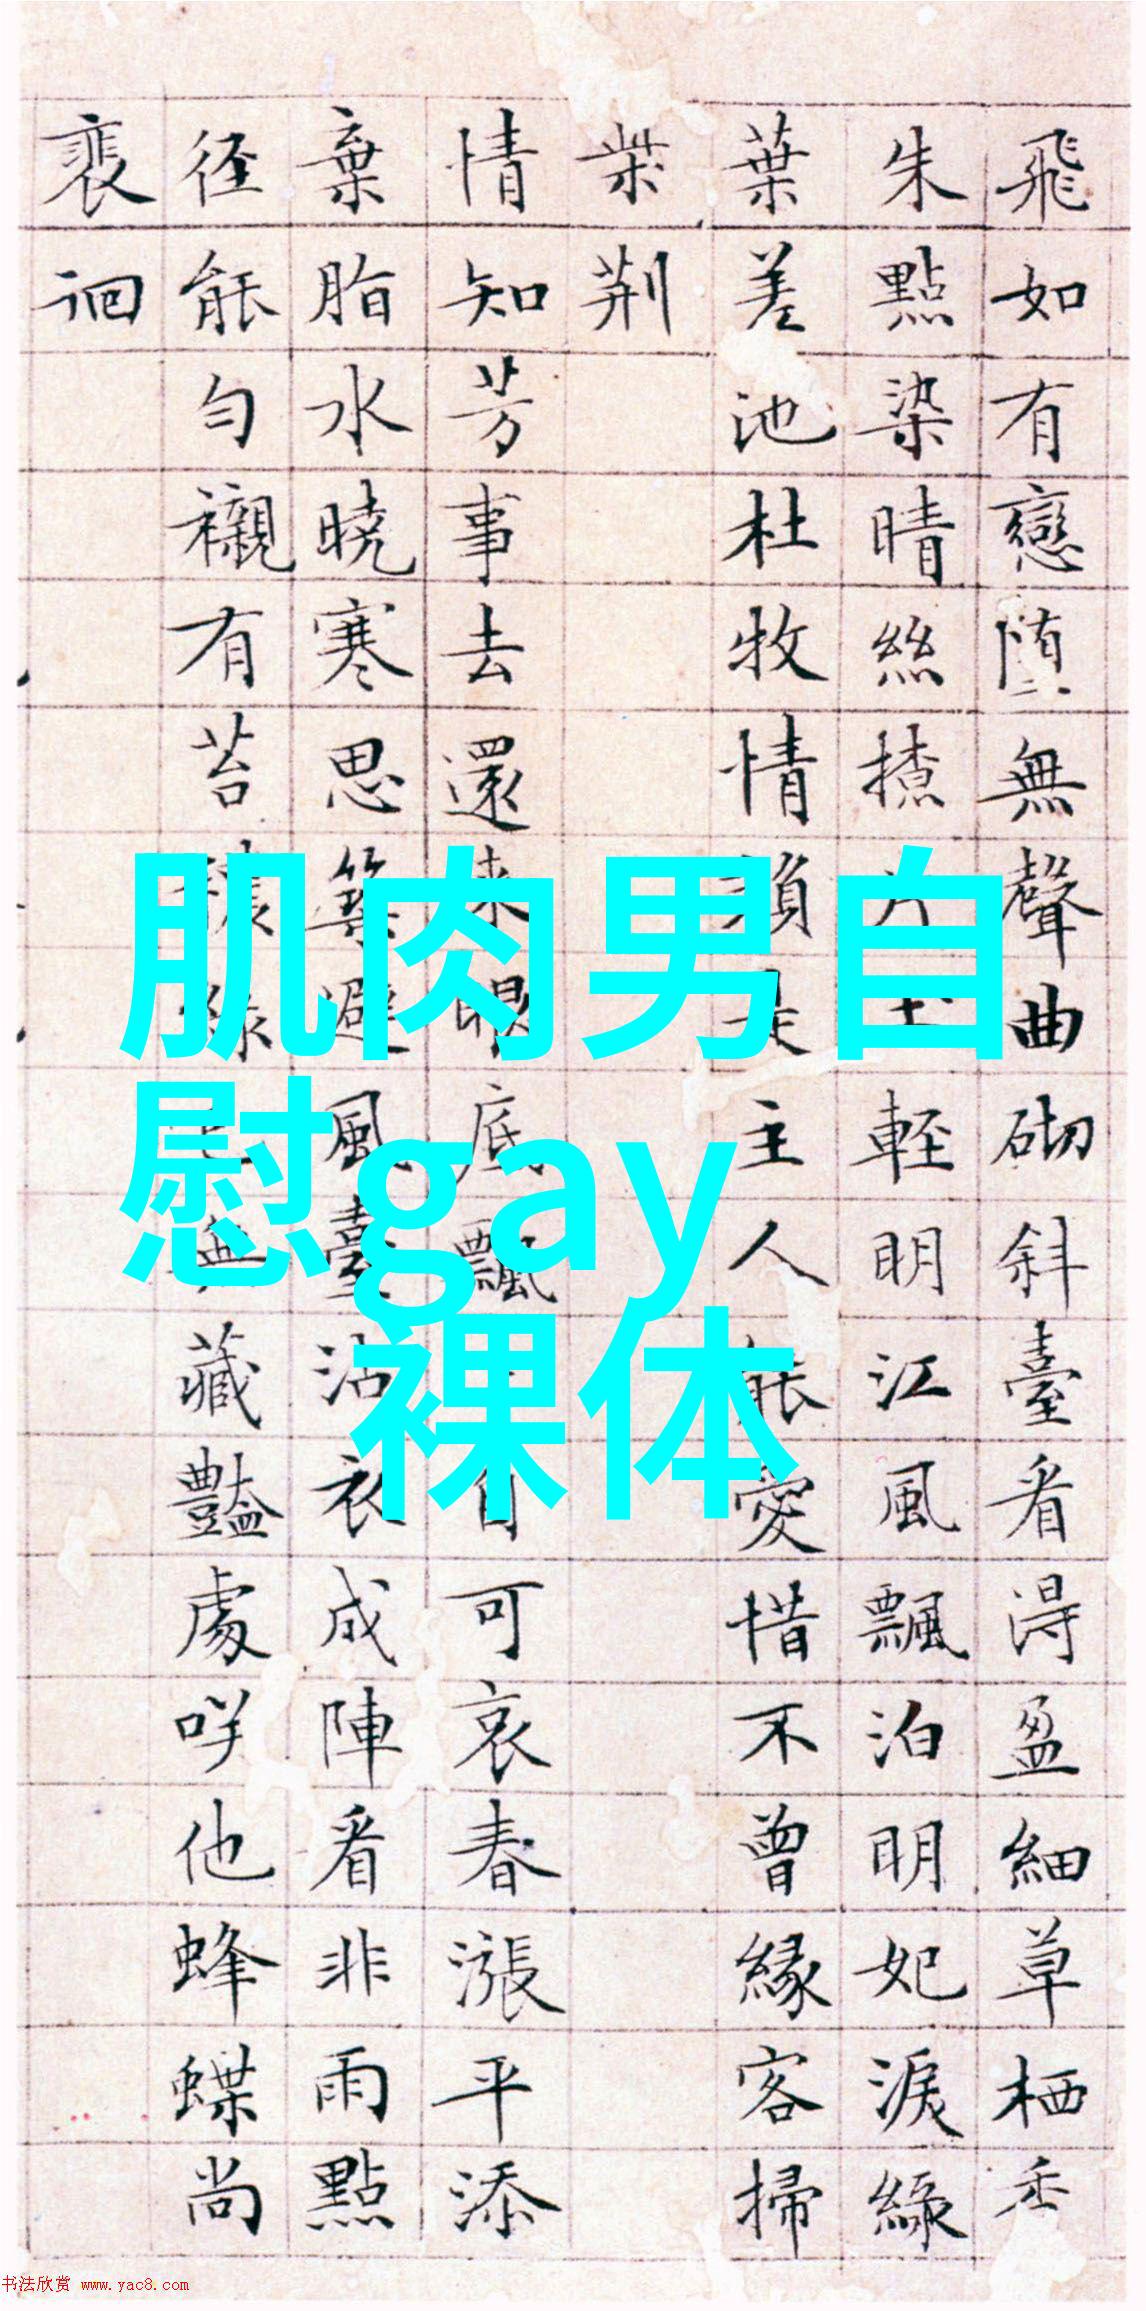 飛如有戀堕無聲曲砌斜臺看淂盈細草栖香
朱點染晴絲揸輊明江風飄泊明妃淚綠
葉差池杜牧情湏是主人能愛惜不曾緣客掃
柴荆
情知芳事去還來眼底飄自可哀春漲平添
棄脂水曉寒思築避風臺沾衣成陣看非雨點
径能勻襯有苔綠無藏豔處咲他蜂蝶尚
裵徊
肌肉男自
慰gay
裸体
书法欣赏 www.yac8.com